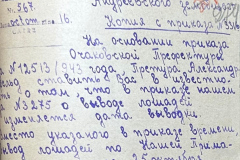 № 567.
16.
Копия с приказа №
На основании приказа
Очаковской Префектуры
№12513/943 года, Претура Александр
ставит Вас в известно
о том что в приказе нашем
№3275 о выводе лошадей
изменяется дата выводки
вместо указаного в приказе времени
вывод лошадей по Нашей Прима
25 октября